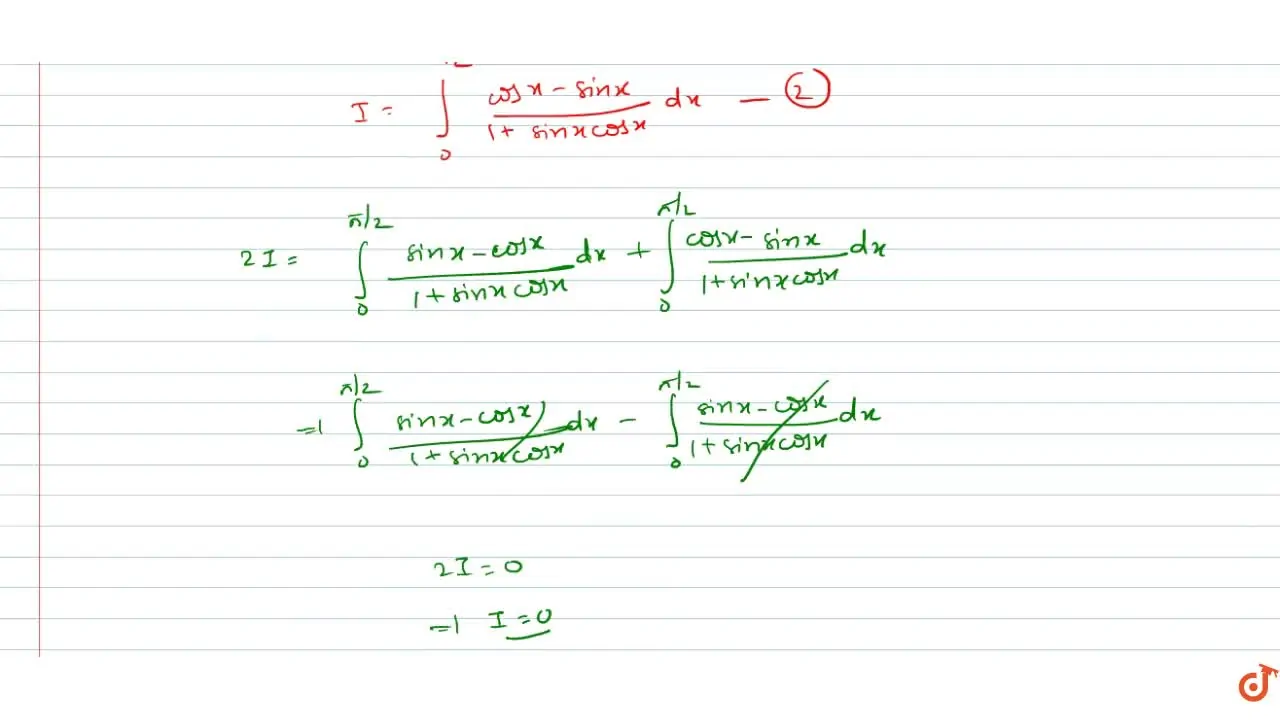 I = ∫₀ (cos x − sin x)/(1 + sin x cos x) dx — ②
2I = ∫₀^{π/2} (sin x − cos x)/(1 + sin x cos x) dx + ∫₀^{π/2} (cos x − sin x)/(1 + sin x cos x) dx
⇒ ∫₀^{π/2} (sin x − cos x)/(1 + sin x cos x) dx − ∫₀^{π/2} (sin x − cos x)/(1 + sin x cos x) dx
2I = 0
⇒ I = 0